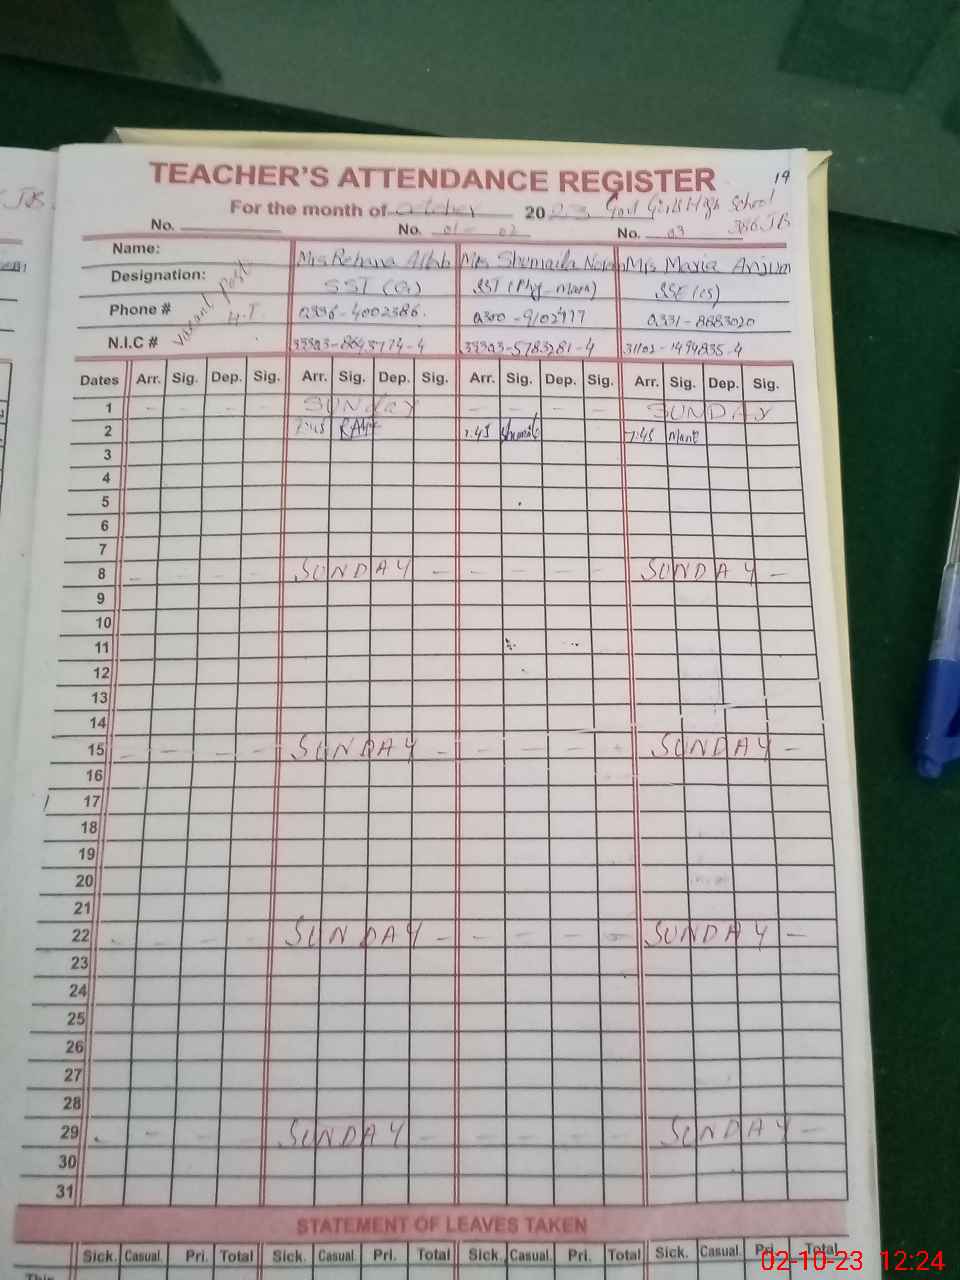 TEACHER'S ATTENDANCE REGISTER 19
For the month of october 2023 Govt Girls High School
No. No. 01 - 02 No. 03 386 JB
Name: Mrs Rehana Mrs Shumaila Mrs Maria Anjum
Designation: SST (G) SST (Phy-Math) SSE (CS)
Vacant Post H.T
Phone # 0336-4002386. 0300-9102977 0331-8883020
N.I.C # 31102-1494835-4
Dates Arr. Sig. Dep. Sig. Arr. Sig. Dep. Sig. Arr. Sig. Dep. Sig. Arr. Sig. Dep. Sig.
1 - - - - SUNDAY - - - - SUNDAY
2 7:45 7:45 7:45
3
4
5
6
7
8 - - - - SUNDAY - - - - - SUNDAY -
9
10
11
12
13
14
15 - - - - SUNDAY - - - - - SUNDAY -
16
17
18
19
20
21
22 - - - - SUNDAY - - - - - SUNDAY -
23
24
25
26
27
28
29 - - - - SUNDAY - - - - - SUNDAY -
30
31
STATEMENT OF LEAVES TAKEN
Sick. Casual. Pri. Total Sick. Casual. Pri. Total Sick. Casual. Pri. Total Sick. Casual. Pri. Total
This
02-10-23 12:24